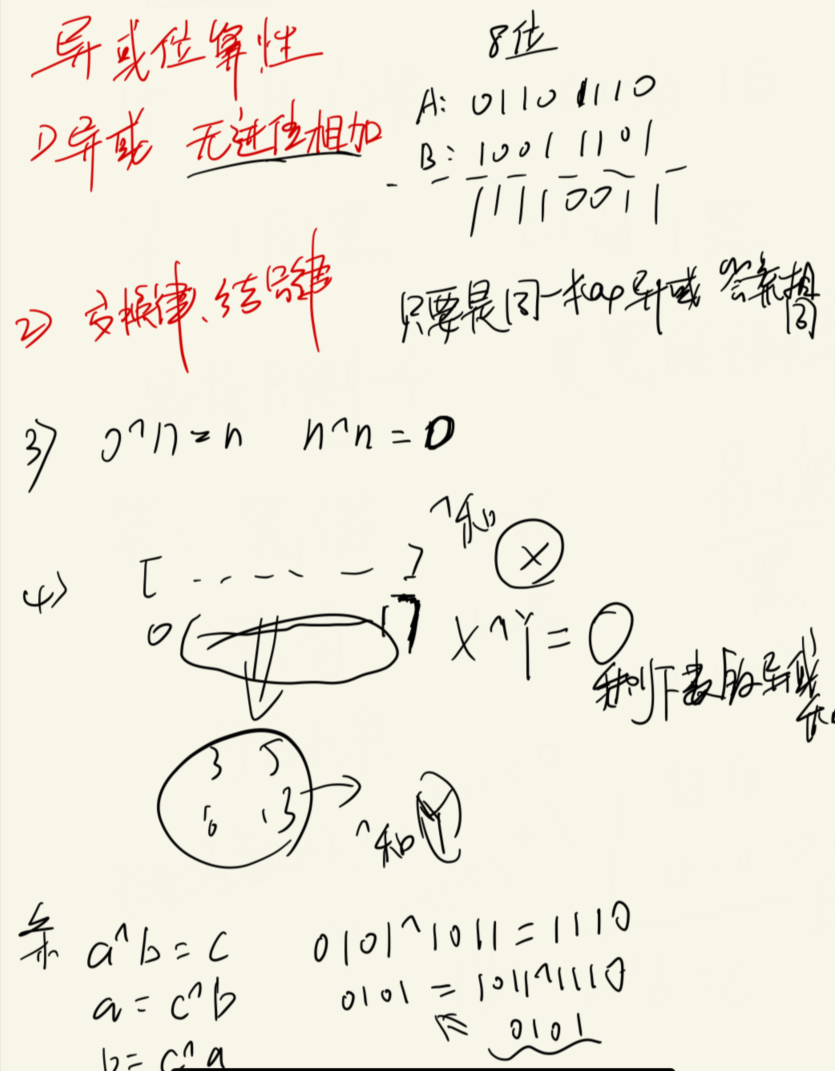 异或位算性
8位
1) 异或 无进位相加
A: 01101110
B: 10011101
11110011
2) 交换律、结合律
只要是同一批 异或 会
3) 0^n=n n^n=0
4) [ ] ^和 X
0 7 X^Y=0
剩下数的异或
3 5
6 13
^和 Y
a^b=c 0101^1011=1110
a=c^b 0101=1011^1110
0101
b=c^a